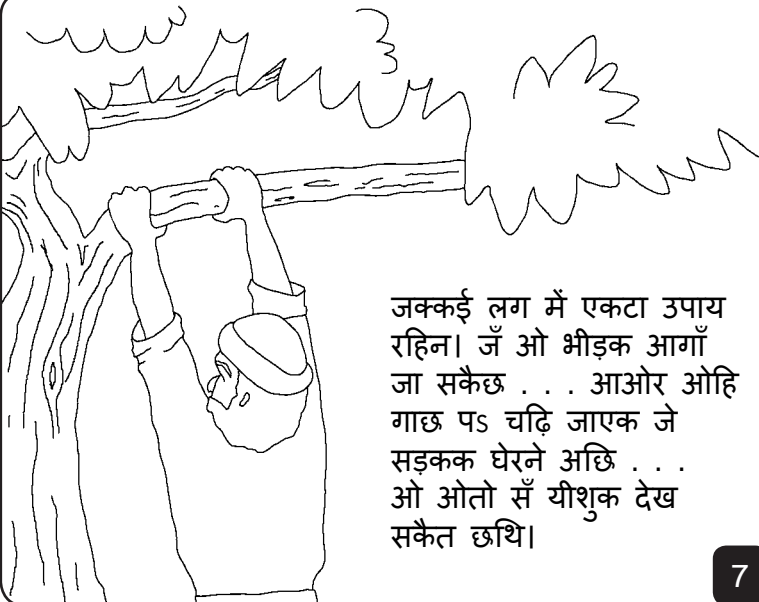 जक्कई लग में एकटा उपाय
रहिन। जँ ओ भीड़क आगाँ
जा सकैछ . . . आओर ओहि
गाछ पऽ चढ़ि जाएक जे
सड़कक घेरने अछि . . .
ओ ओतो सँ यीशुक देख
सकैत छथि।
7